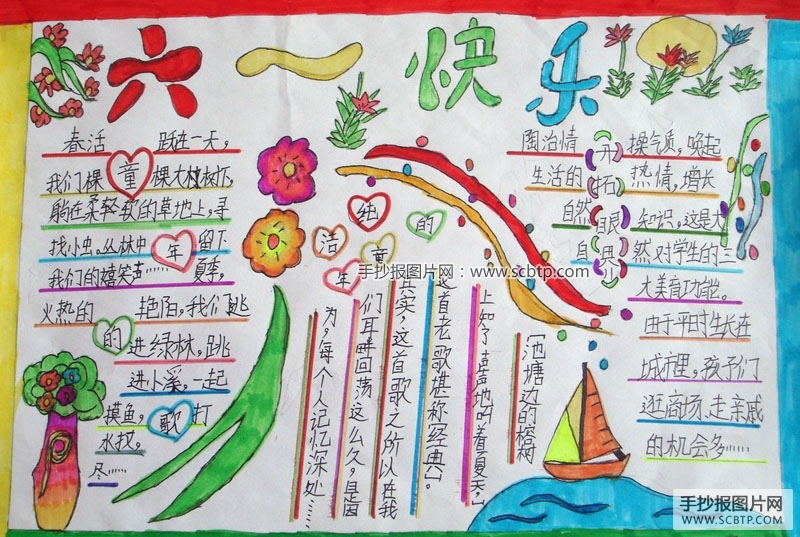 六一快乐
春活 跃在一天，
我们棵 童 棵大树下，
躺在柔轻软的草地上，寻
找小虫。丛林中 年 留下
我们的嬉笑声…… 夏季，
火热的 艳阳，我们跳
的 进绿林，跳
进小溪，一起
摸鱼， 歌 打
水找，
尽……
纯洁的
童年
《池塘边的榕树
上知了声声地叫着夏天。》
这首老歌堪称《经典》。
其实，这首歌之所以在我
们耳畔回荡这么久，是因
为，每个人记忆深处……
陶冶情 开 操气质，唤起
生活的 拓 热情，增长
自然 眼 知识，这是大
自 界 然对学生的三
大美育功能。
由于平时生长在
城市里，孩子们
逛商场、走亲戚
的机会多……
手抄报图片网：www.scbtp.com
手抄报图片网
WWW.SCBTP.COM